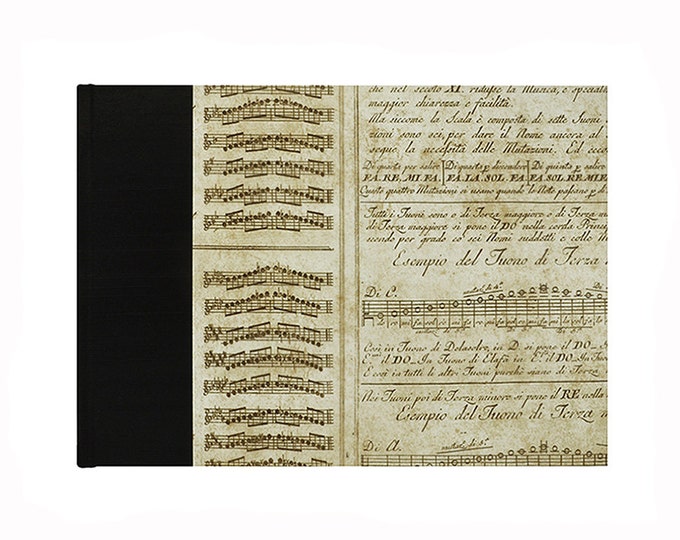 che nel secolo XI. ridusse la Musica, e speciali
maggior chiarezza e facilità.
Ma siccome la Scala è composta di sette Tuoni
zioni sono sei, per dare il Nome ancora al
seguo, la necessità delle Mutazioni. Ed ecco
Di quarta p salire Di quarta p discender Di quinta p salire
FA. RE. MI FA. FA. LA. SOL. FA FA SOL RE MI F
Queste quattro Mutazioni si usano quando le Note passano p d
Tutti i Tuoni sono o di Terza maggiore o di Terza mi
di Terza maggiore si pone il DO nella corda Princip
scendo per grado co' sei Nomi suddetti e colle
Esempio del Tuono di Terza
Di C.
mutaz. di 4ª
Così in Tuono di Delasolre, in D. si pone il DO
il DO. In Tuono di Elafà in E. il DO. In Tuon
E così in tutti le altri Tuoni purchè siano di Terza
Nei Tuoni poi di Terza minore si pone il RE nella
Esempio del Tuono di Terza
Di A.
mutaz. di 5ª